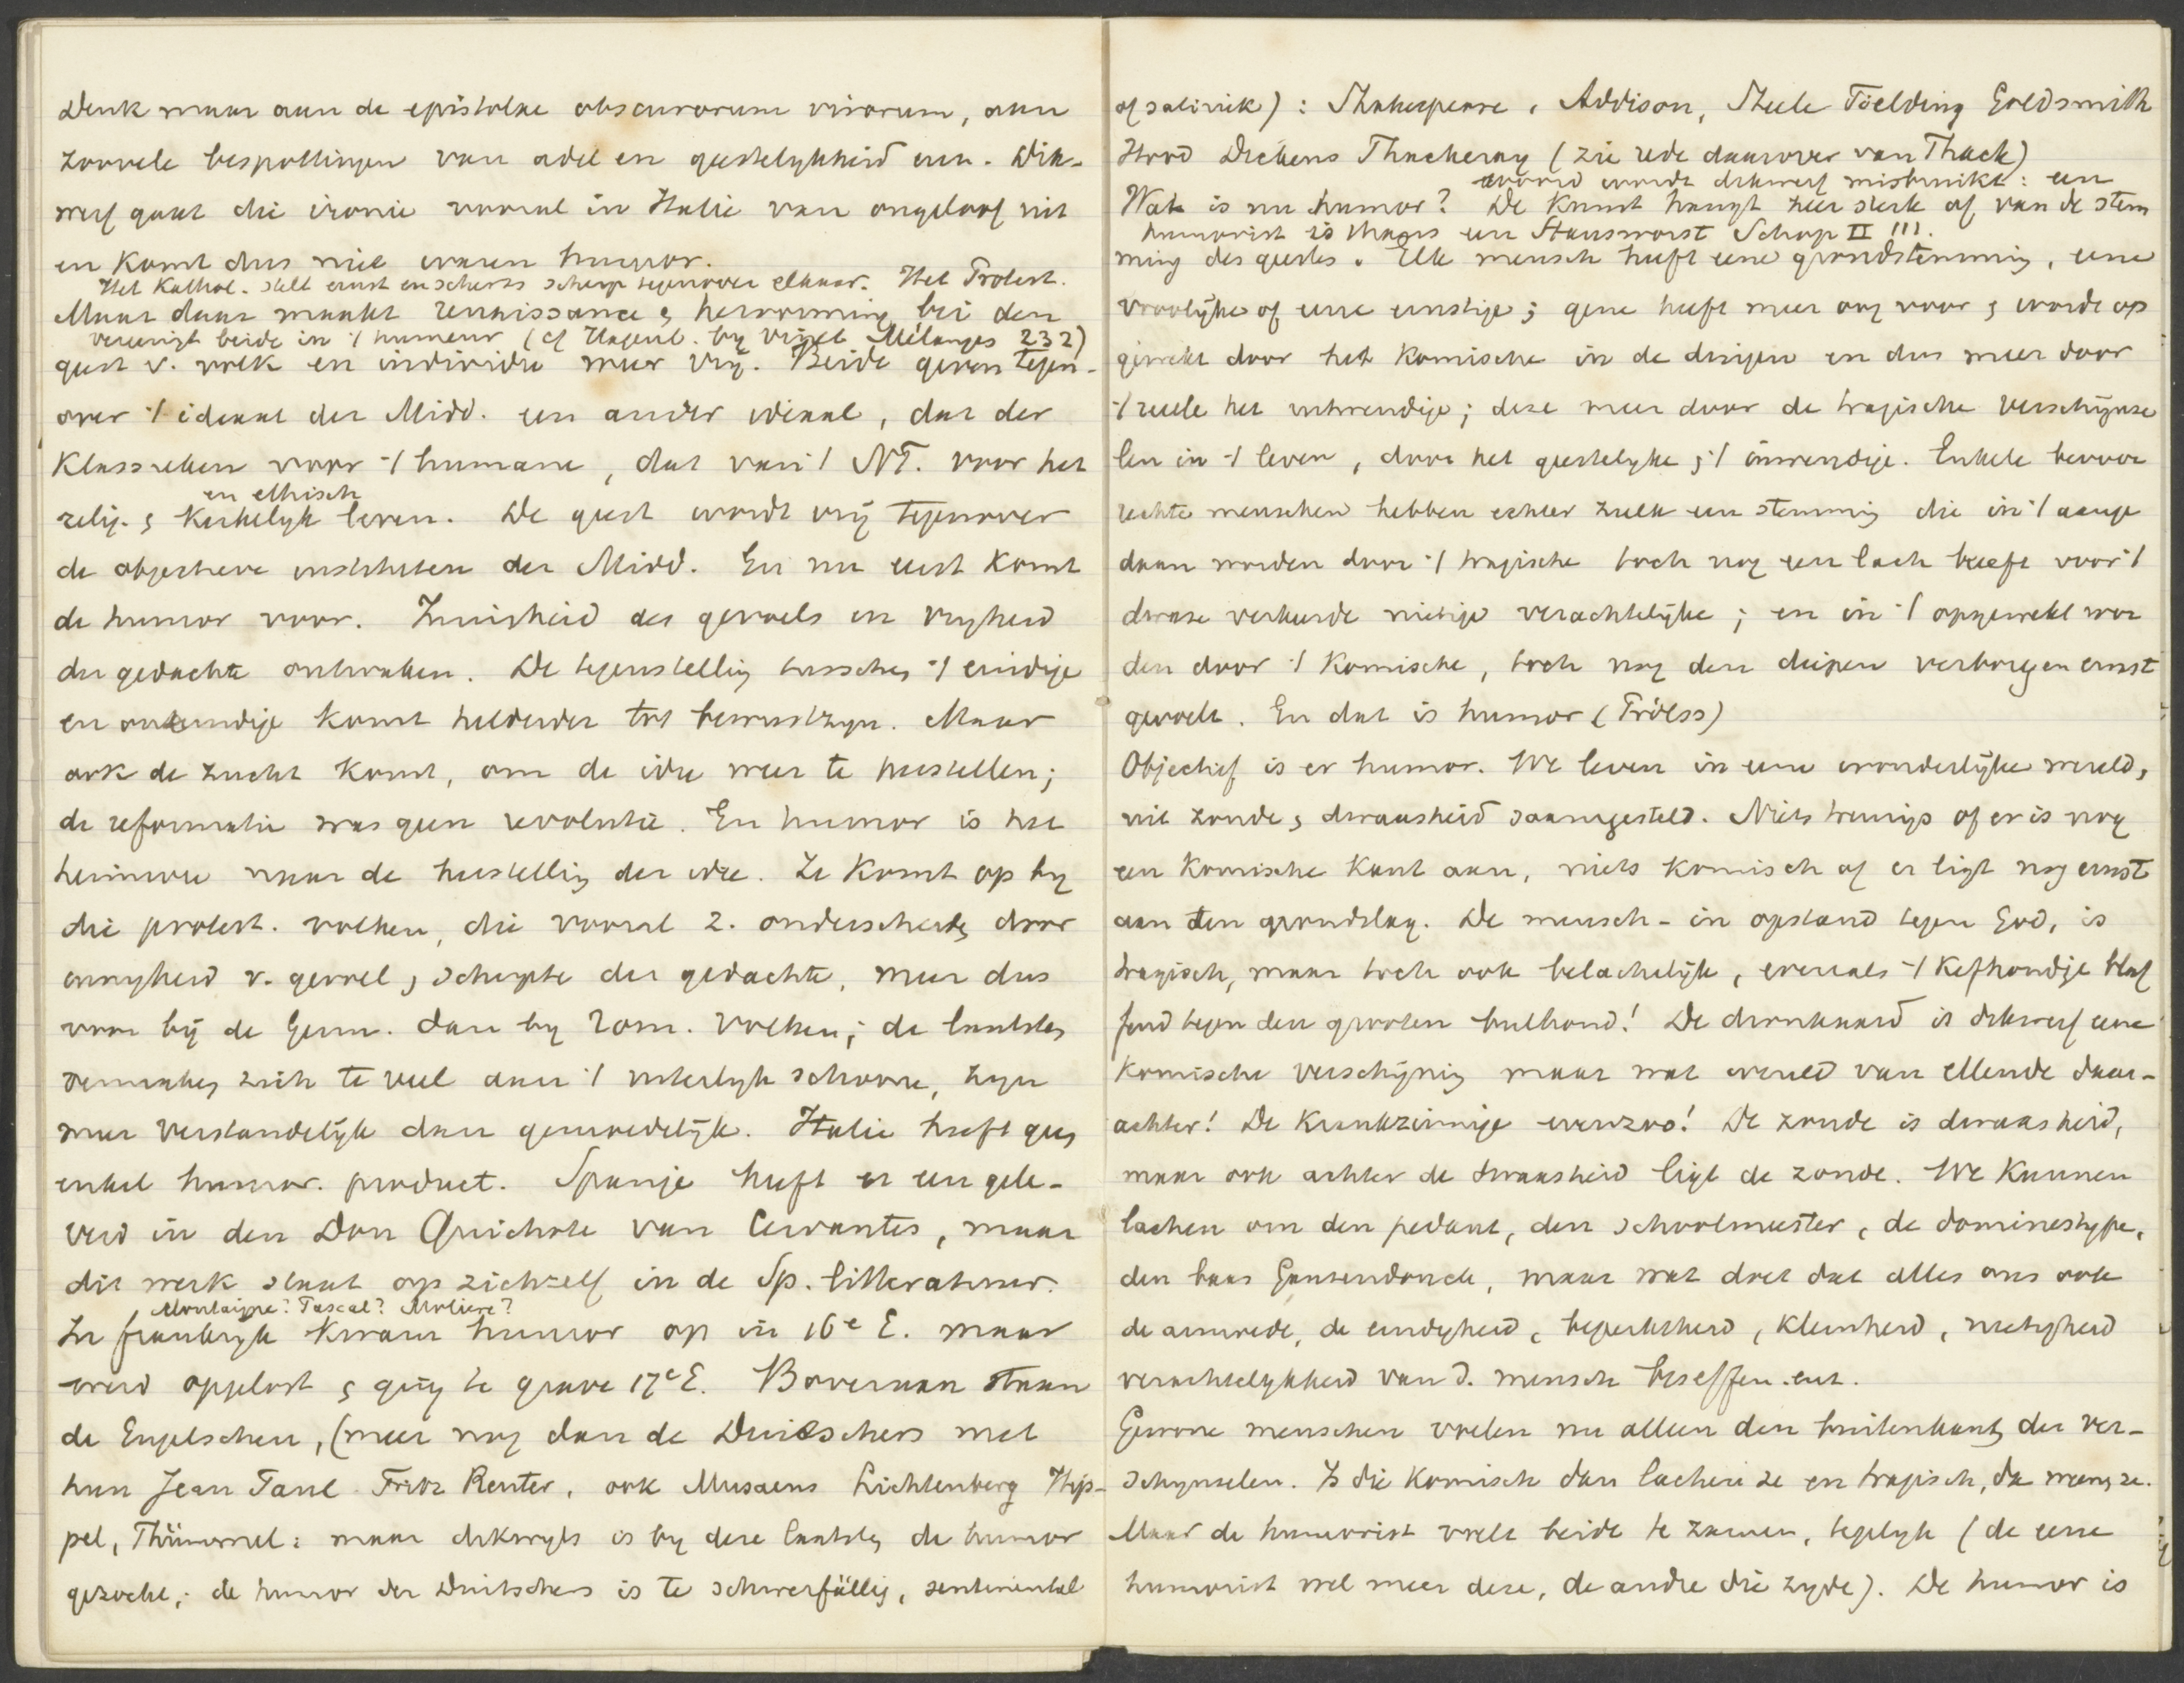 Denk maar aan de epistolae obscurorum virorum, aan
zoovele bespottingen van adel en geestelykheid enz. Dik-
werf gaat die ironie vooral in Italie van ongeloof uit
en komt dus niet waren humor.
Het Kathol. stelt ernst en scherts scherp tegenover elkaar. Het Protest.
vereenigt beide in 't humeur (cf Hagenb. by Vinet Mélanges 232)
Maar daar maakt renaissance & hervorming bei den
geest v. volk en individu meer vrij. Beide geven tegen-
over 't ideaal der Midd. een ander ideaal, dat der
Klassieken voor 't humane, dat van 't NT. voor het
en ethisch
relig. & Kerkelyk leven. De geest wordt vrij tegenover
de objectieve instituten der Midd. En nu eerst komt
de humor voor. Innigheid des gevoels en vryheid
der gedachte ontwaken. De tegenstelling tusschen 't eindige
en oneindige komt helderder tot bewustzyn. Maar
ook de zucht komt, om de idee weer te herstellen;
de reformatie was geen revolutie. En humor is het
heimwee naar de herstelling der idee. Ze komt op by
die protest. volken, die vooral z. onderscheiden door
innigheid v. gevoel & scherpte der gedachte, meer dus
voor bij de Germ. dan by Rom. volken; de laatsten
vermaken zich te veel aan 't uiterlyk schoone, zyn
meer verstandelijk dan gemoedelijk. Italie heeft geen
enkel humor. product. Spanje heeft er een gele-
verd in den Don Quichote van Cervantes, maar
dit werk staat op zichzelf in de Sp. litteratuur.
Montaigne? Pascal? Moliere?
In frankryk kwam humor op in 16e E. maar
werd opgelost & ging te grave 17e E. Bovenaan staan
de Engelschen, (meer nog dan de Duitschers met
hun Jean Paul Fritz Reuter, ook Musaeus Lichtenberg Hip-
pel, Thümmel: maar dikwyls is by deze laatsten de humor
gezocht; de humor der Duitschers is te schwerfällig, sentimental
of satiriek): Shakespeare, Addison, Steele Fielding Goldsmith
Hood Dickens Thackeray (zie rede daarover van Thack)
woord wordt dikwerf misbruikt: een
humorist is thans een Hansworst Schop II !!!.
Wat is nu humor? De Kunst hangt zeer sterk af van de stem
ming des geestes. Elk mensch heeft eene grondstemming, eene
vroolijke of eene ernstige; gene heeft meer oog voor & wordt op
gewekt door het komische in de dingen en dus meer door
't reele het uitwendige; deze meer door de tragische verschijnse
len in 't leven, door het geestelyke & 't inwendige. Enkele bevoor
rechte menschen hebben echter zulk een stemming die in 't aange
daan worden door 't tragische toch nog een lach heeft voor 't
dwaze verkeerde nietige verachtelijke; en in 't opgewekt wor
den door 't Komische, toch nog den diepen verborgen ernst
gevoelt. En dat is humor (Fröess)
Objectief is er humor. We leven in eene wonderlijke wereld,
uit zonde & dwaasheid saamgesteld. Niets treurigs of er is nog
een Komische Kant aan, niets komisch of er ligt nog ernst
aan ten grondslag. De mensch - in opstand tegen God, is
tragisch, maar toch ook belachelijk, evenals 't Kefhondje blaf
fend tegen den grooten bulhond! De dronkaard is dikwerf eene
Komische verschijning maar wat wereld van ellende daar-
achter! De Krankzinnige evenzoo! De zonde is dwaasheid,
maar ook achter de dwaasheid ligt de zonde. We Kunnen
lachen om den pedant, den schoolmeester, de dominestype,
den baas Gansendonck, maar wat doet dat alles ons ook
de armoede, de eindigheid, beperktheid, Kleinheid, nietigheid
verachtelykheid van d. mensch beseffen. enz.
Gewone menschen voelen nu alleen den buitenkant der ver-
schynselen. Is die komisch dan lachen ze en tragisch, dan weenen ze.
Maar de humorist voelt beide te zamen, tegelyk (de eene
humorist wel meer deze, de andre die zyde). De humor is